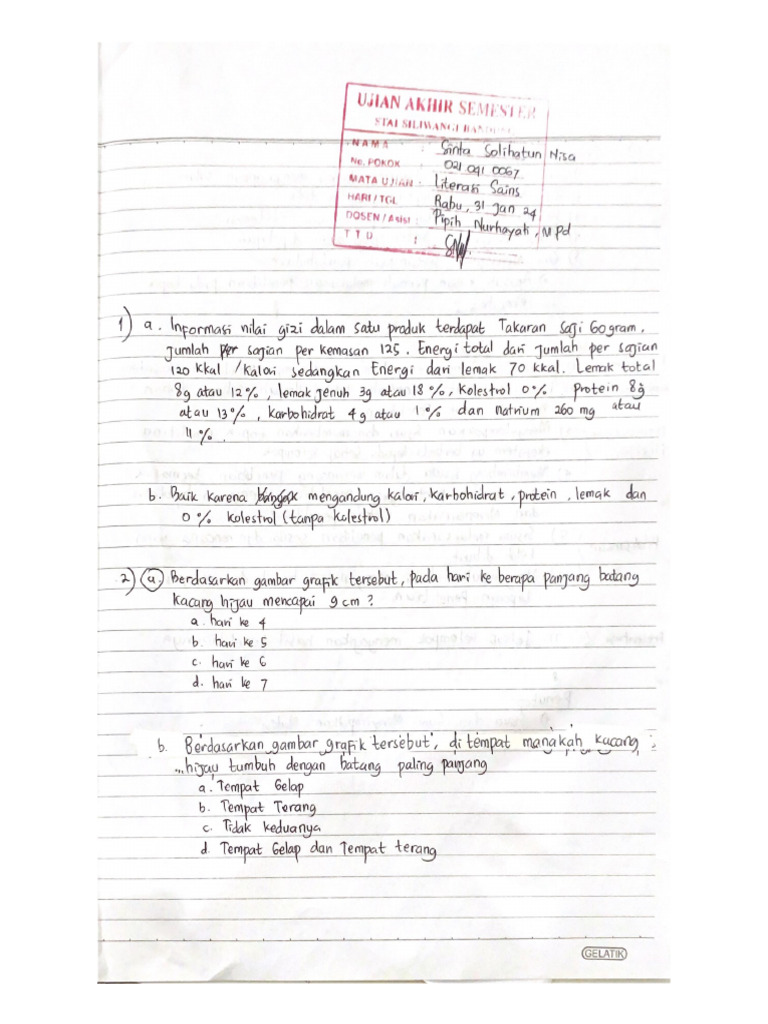 UJIAN AKHIR SEMESTER
STAI SILIWANGI BANDUNG
NAMA : Sinta Solihatun Nisa
No. POKOK : 021 091 0067
MATA UJIAN : Literasi Sains
HARI / TGL : Rabu, 31 Jan 24
DOSEN / Asist : Pipih Nurhayati, M.Pd
T T D :
1) a. Informasi nilai gizi dalam satu produk terdapat Takaran saji 60 gram,
jumlah per sajian per kemasan 125. Energi total dari jumlah per sajian
120 KKal / Kalori sedangkan Energi dari lemak 70 kkal. Lemak total
8g atau 12%, lemak jenuh 3g atau 18%, kolestrol 0% protein 8g
atau 13%, karbohidrat 4g atau 1% dan natrium 260 mg atau
11%.
b. Baik karena mengandung kalori, karbohidrat, protein, lemak dan
0% kolestrol (tanpa kolestrol)
2) a. Berdasarkan gambar grafik tersebut, pada hari ke berapa panjang batang
kacang hijau mencapai 9 cm?
a. hari ke 4
b. hari ke 5
c. hari ke 6
d. hari ke 7
b. Berdasarkan gambar grafik tersebut, di tempat manakah kacang
hijau tumbuh dengan batang paling panjang
a. Tempat Gelap
b. Tempat Terang
c. Tidak keduanya
d. Tempat Gelap dan Tempat terang
GELATIK